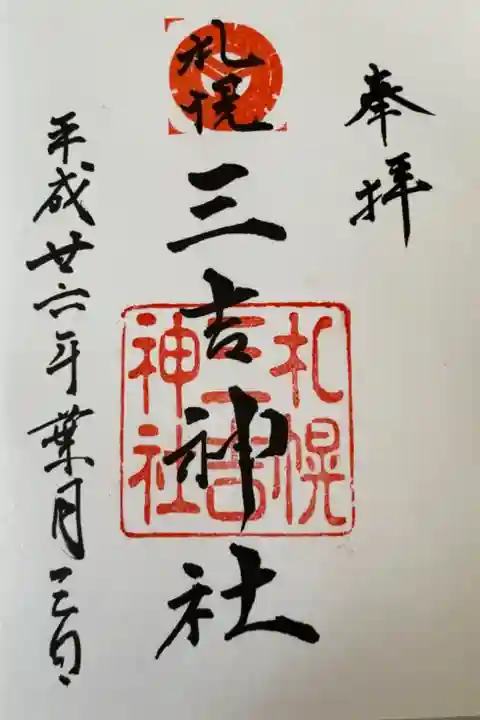 奉拝
札幌
三吉神社
札幌
三吉
神社
平成廿六年葉月三日